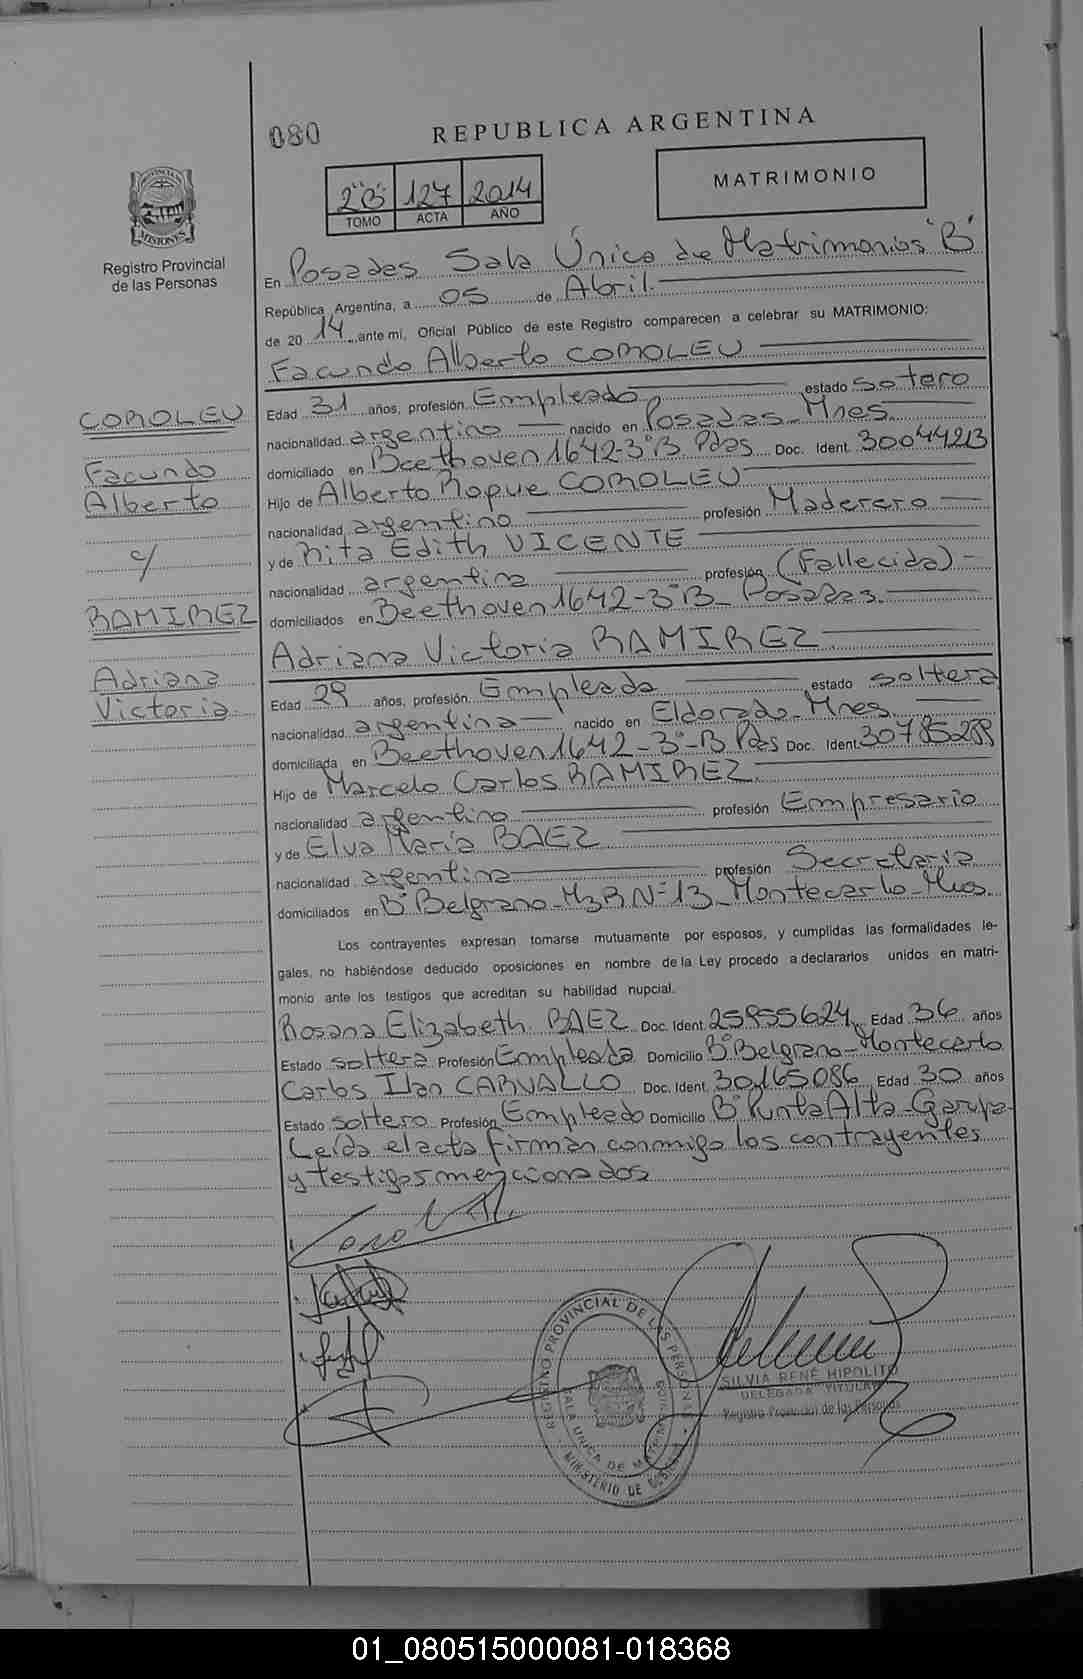 080
REPUBLICA ARGENTINA
2"B" 127 2014
TOMO ACTA AÑO
MATRIMONIO
PROVINCIA DE
MISIONES
Registro Provincial
de las Personas
En Posadas Sala Única de Matrimonios "B"
República Argentina, a 05 de Abril
de 2014 ante mi, Oficial Público de este Registro comparecen a celebrar su MATRIMONIO:
Facundo Alberto COROLEU
Edad 31 años, profesión Empleado estado soltero
nacionalidad argentino nacido en Posadas Mnes.
domiciliado en Beethoven 1642-3°B Pdas Doc. Ident. 30044213
Hijo de Alberto Roque COROLEU
nacionalidad argentino profesión Maderero
y de Rita Edith VICENTE
nacionalidad argentina profesión (Fallecida)
domiciliados en Beethoven 1642-3°B_ Posadas
Adriana Victoria RAMIREZ
Edad 29 años, profesión Empleada estado soltera
nacionalidad argentina nacido en Eldorado-Mnes
domiciliada en Beethoven 1642-3°-B Pdas Doc. Ident. 30785289
Hijo de Marcelo Carlos RAMIREZ
nacionalidad argentino profesión Empresario
y de Elva María BAEZ
nacionalidad argentina profesión Secretaria
domiciliados en B° Belgrano- N°13_Montecarlo-Mnes.
Los contrayentes expresan tomarse mutuamente por esposos, y cumplidas las formalidades le-
gales, no habiéndose deducido oposiciones en nombre de la Ley procedo a declararlos unidos en matri-
monio ante los testigos que acreditan su habilidad nupcial.
Rosana Elizabeth BAEZ Doc. Ident. 25955624 Edad 36 años
Estado soltera Profesión Empleada Domicilio B° Belgrano-Montecarlo
Carlos Ilan CARVALLO Doc. Ident. 30.165.086 Edad 30 años
Estado soltero Profesión Empleado Domicilio B° Punta Alta-Garupa-
Leída el acta firman conmigo los contrayentes
y testigos mencionados
COROLEU
Facundo
Alberto
c/
RAMIREZ
Adriana
Victoria
REGISTRO PROVINCIAL DE LAS PERSONAS
SALA UNICA DE MATRIMONIOS
MINISTERIO DE GOBIERNO
SILVIA RENÉ HIPOLITO
DELEGADA TITULAR
Registro Provincial de las Personas
01_080515000081-018368